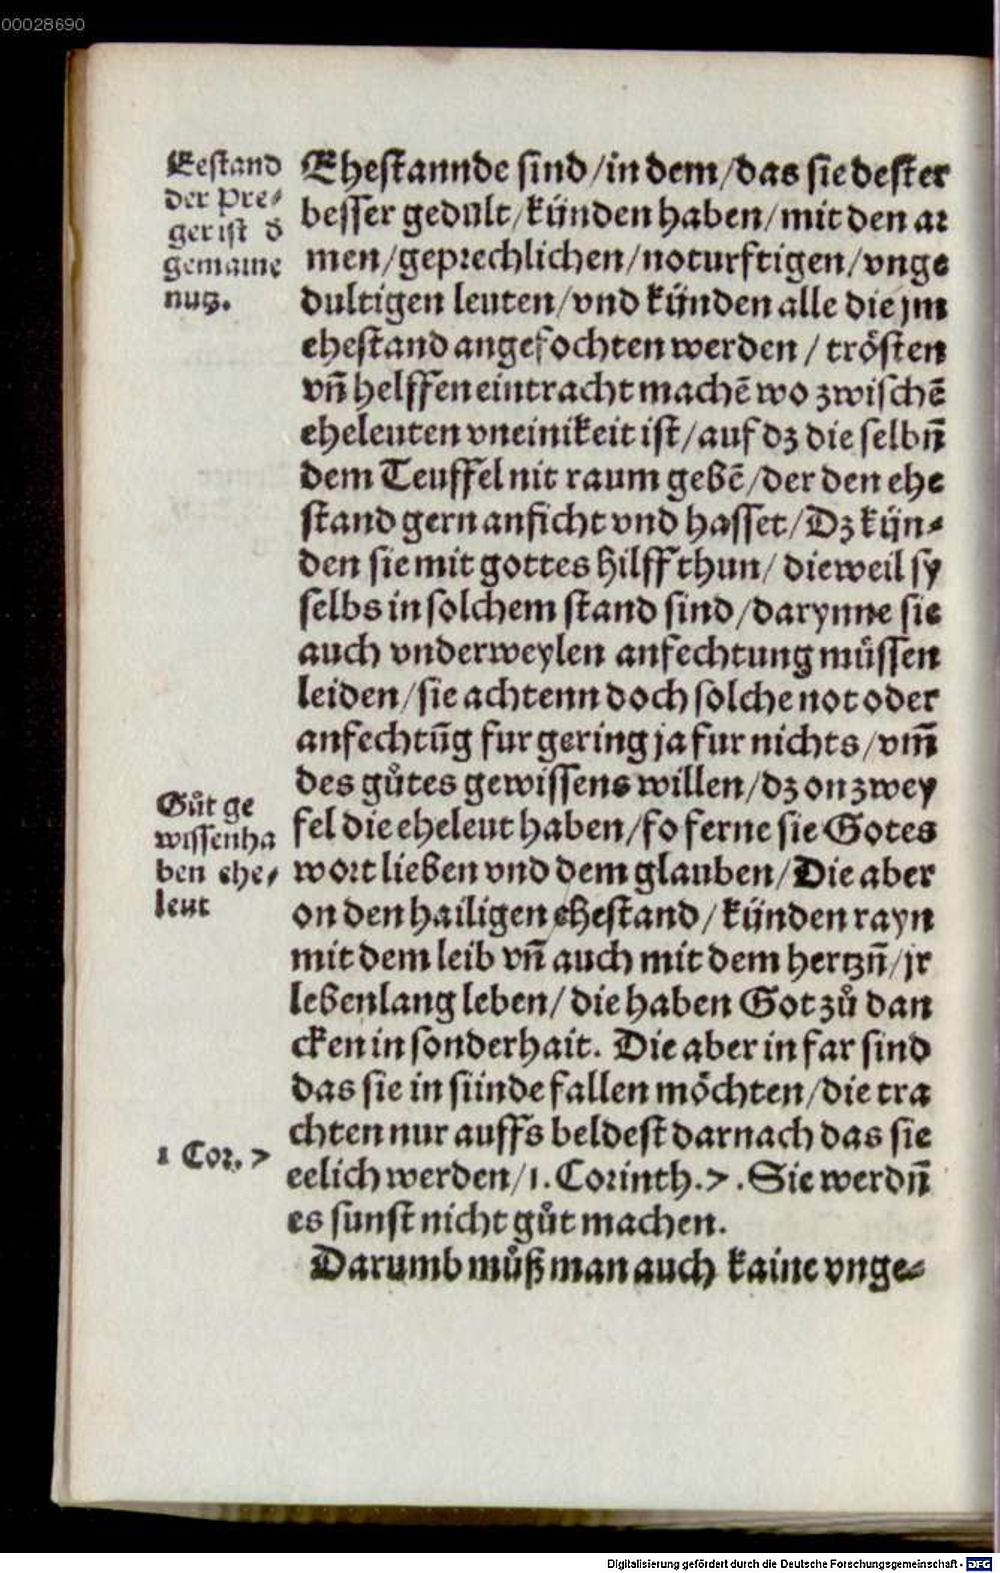 00028690
Eestand
der pre⸗
ger ist d̓
gemaine
nutz.
Ehestannde sind/in dem/das sie dester
besser gedult/künden haben/mit den ar
men/geprechlichen/noturftigen/vnge
dultigen leuten/vnd künden alle die jm
ehestand angefochten werden/trösten
vn̄ helffen eintracht machē wo zwischē
eheleuten vneinikeit ist/auf dz die selbn̄
dem Teuffel nit raum gebē/der den ehe
stand gern anficht vnd hasset/Dz kün⸗
den sie mit gottes hilff thun/dieweil sy
selbs in solchem stand sind/darynne sie
auch vnderweylen anfechtung müssen
leiden/sie achtenn doch solche not oder
anfechtūg fur gering ja fur nichts/vm̄
des gůtes gewissens willen/dz on zwey
Gůt ge
wissen ha
ben ehe⸗
leut
fel die eheleut haben/so ferne sie Gotes
wort lieben vnd dem glauben/Die aber
on den hailigen ehestand/künden rayn
mit dem leib vn̄ auch mit dem hertzn̄/jr
lebenlang leben/die haben Got zů dan
cken in sonderhait. Die aber in far sind
das sie in sünde fallen möchten/die tra
chten nur auffs beldest darnach das sie
1 Cor. 7
eelich werden/1. Corinth. 7. Sie werdn̄
es sunst nicht gůt machen.
Darumb můß man auch kaine vnge⸗
Digitalisierung gefördert durch die Deutsche Forschungsgemeinschaft - DFG